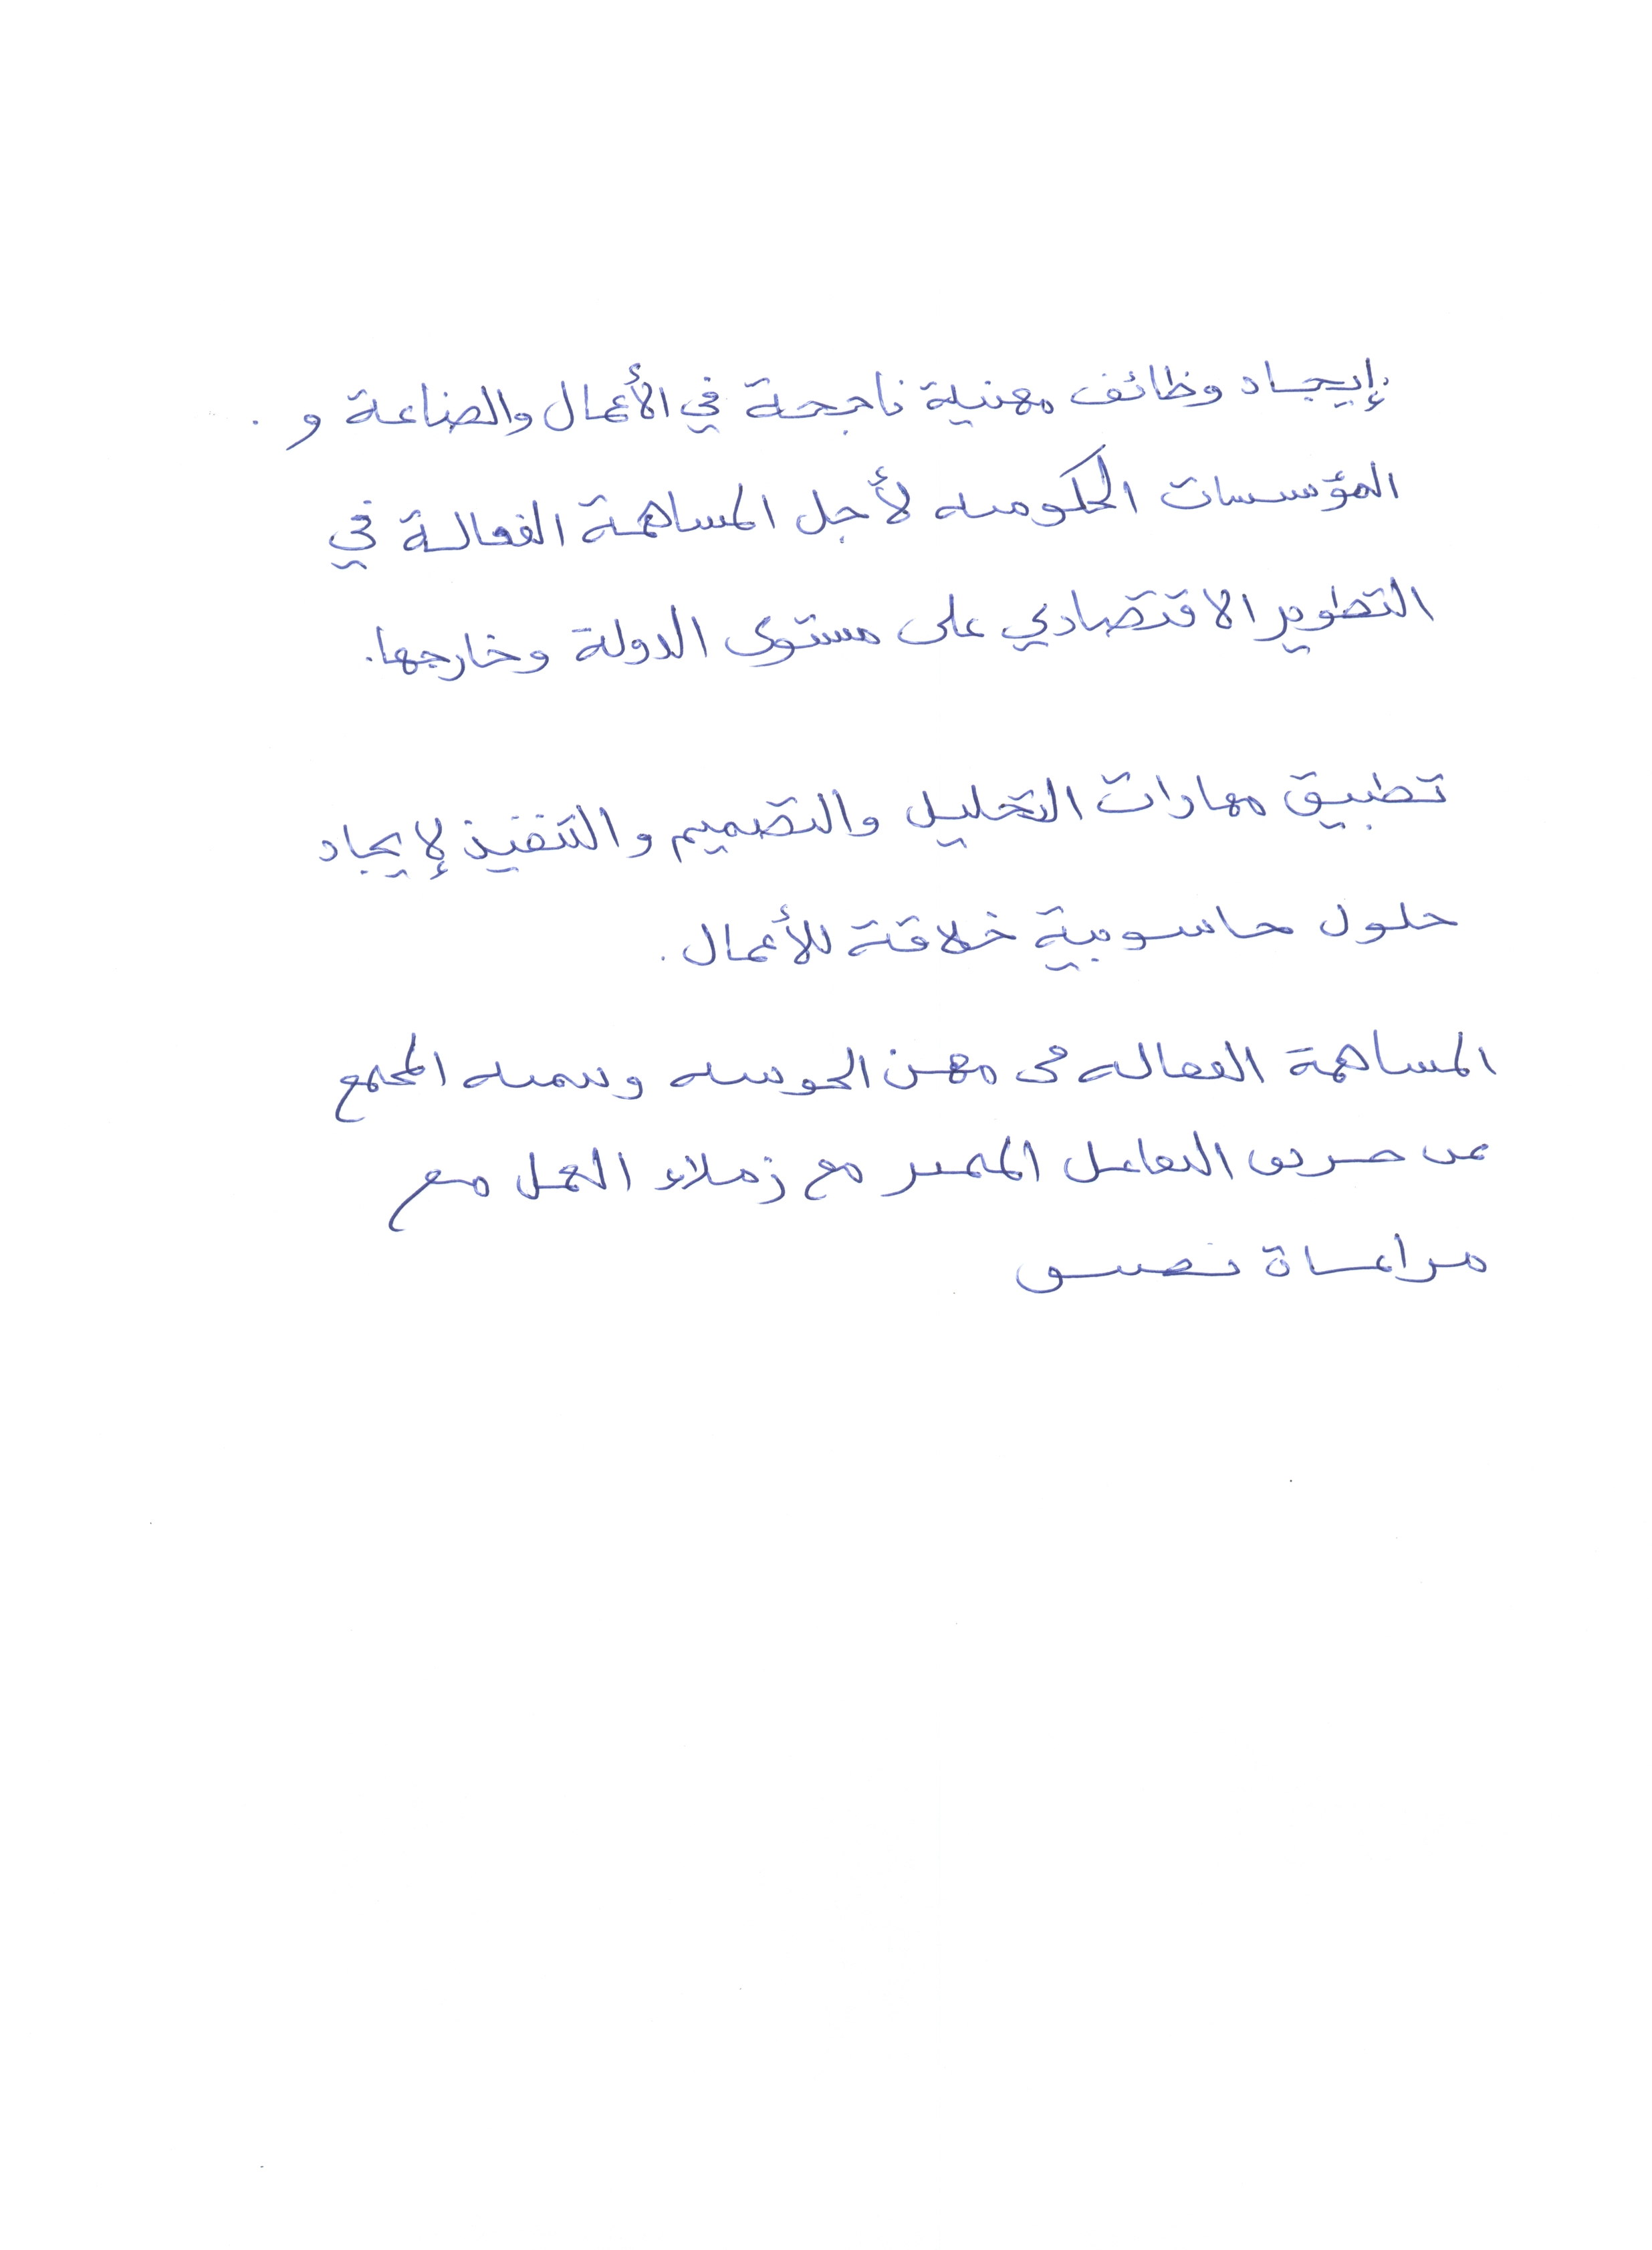 إيجاد وظائف مهنية ناجحة في الأعمال والصناعة و
المؤسسات الحكوميه لأجل المساهمة الفعالة في
التطوير الاقتصادي على مستوى الدولة وخارجها.
تطبيق مهارات التحليل والتصميم والتنفيذ لإيجاد
حلول حاسوبية خلاقة للأعمال.
المساهمة الفعاله في مهن الحوسبه وتنميه المجتمع
عن طريق التفاعل المثمر مع زملاء العمل مع
مراعاة تطبيق